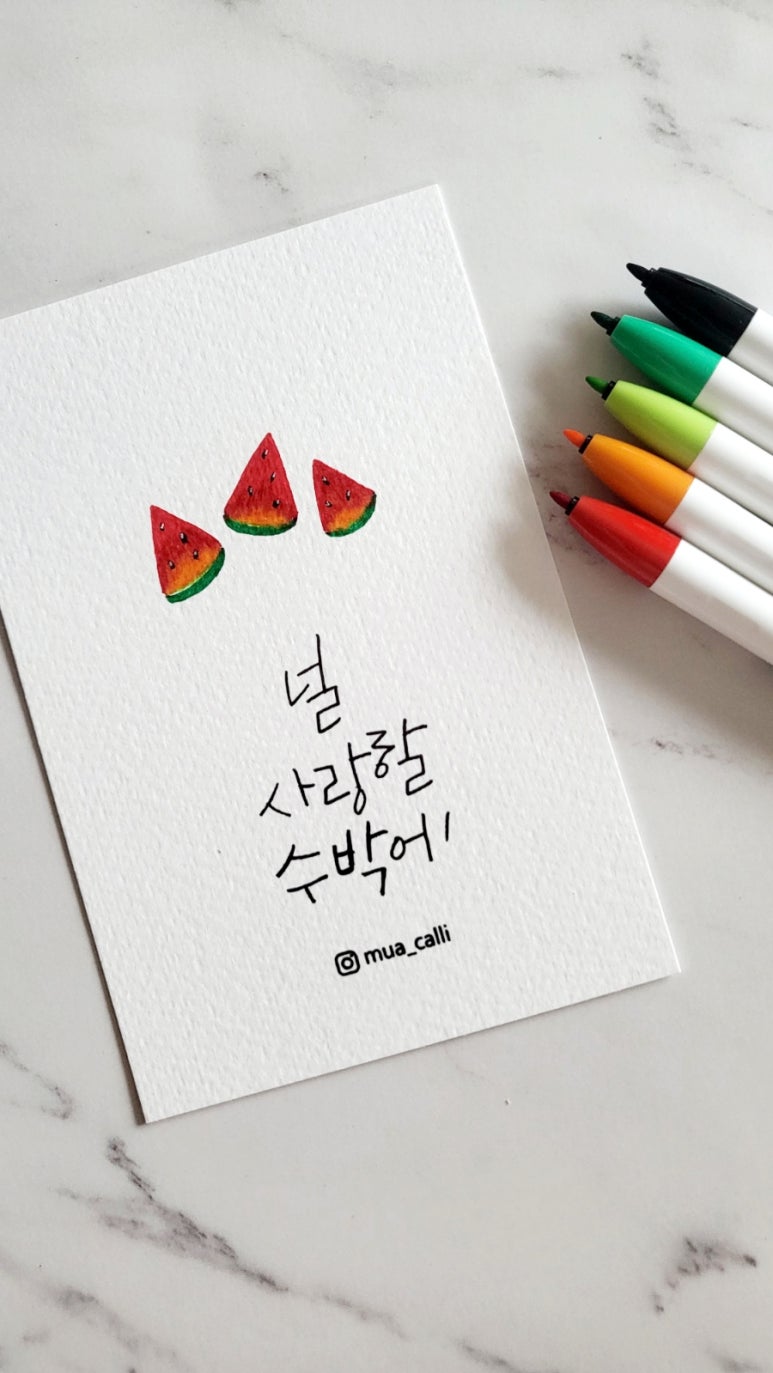 널
사랑할
수박에!
mua_calli